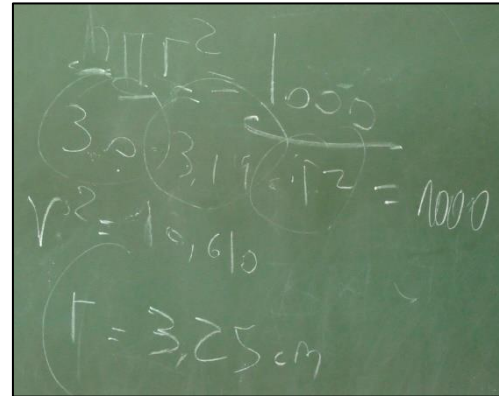 hπr² = 1000
30 · 3,14 · r² = 1000
r² = 10,610
r = 3,25 cm